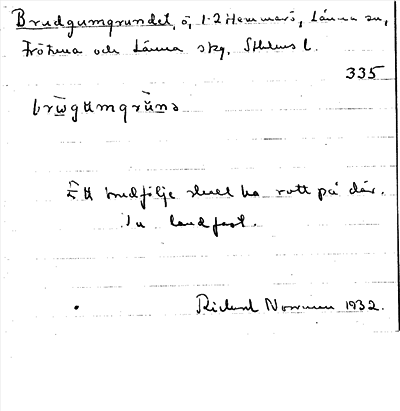 Brudgumgrundet, ö, 1.2 Hemmarö, Länna sn,
Frötuna och Länna skg, Sthlms l.
335
brωgumgrŭnə
Ett brudfölje skall ha rott på där.
Nu landfast.
Rickard Norrman 1932.